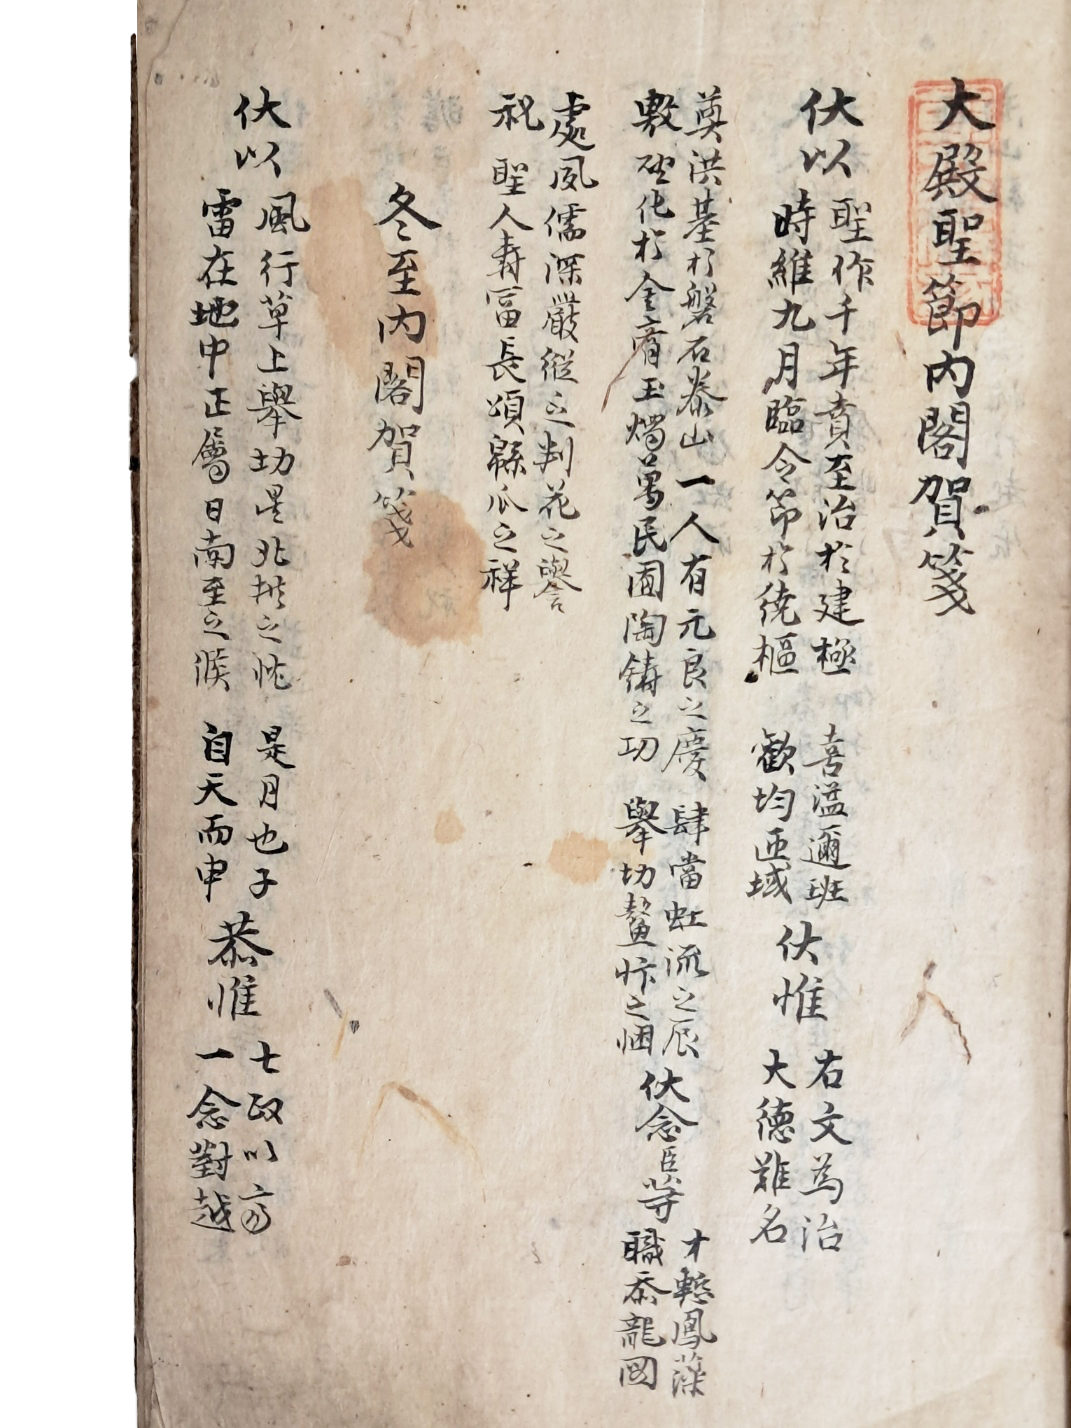 大殿聖節內閣賀箋
伏以
聖作千年賁至治於建極
時維九月臨令節於繞樞
喜溢邇班
歡均匝域
伏惟
右文為治
大德難名
奠洪基於磐石泰山一人有元良之慶
敷 化於金膏玉燭萬民囿陶鑄之功
肆當虹流之辰
擧切鰲忭之悃
伏念臣等
才 鳳藻
職忝龍圖
處夙儒深嚴縱乏判花之譽
祝聖人壽富長頌緜瓜之祥
冬至內閣賀箋
伏以
風行草上擧切星北拱之忱
雷在地中正屬日南至之候
是月也子
自天而申
恭惟
七政以齊
一念對越